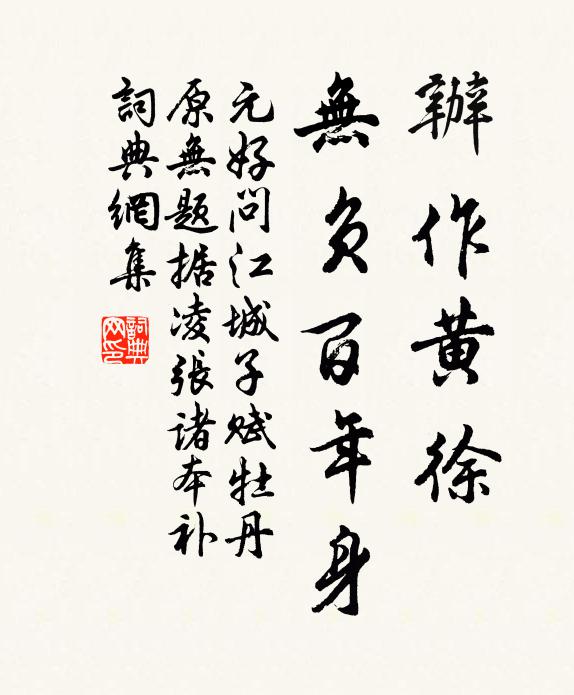 辦作黄徐
無負百年身
元好问江城子赋牡丹
原無题据凌張诸本补
詞典網集
詞典网印